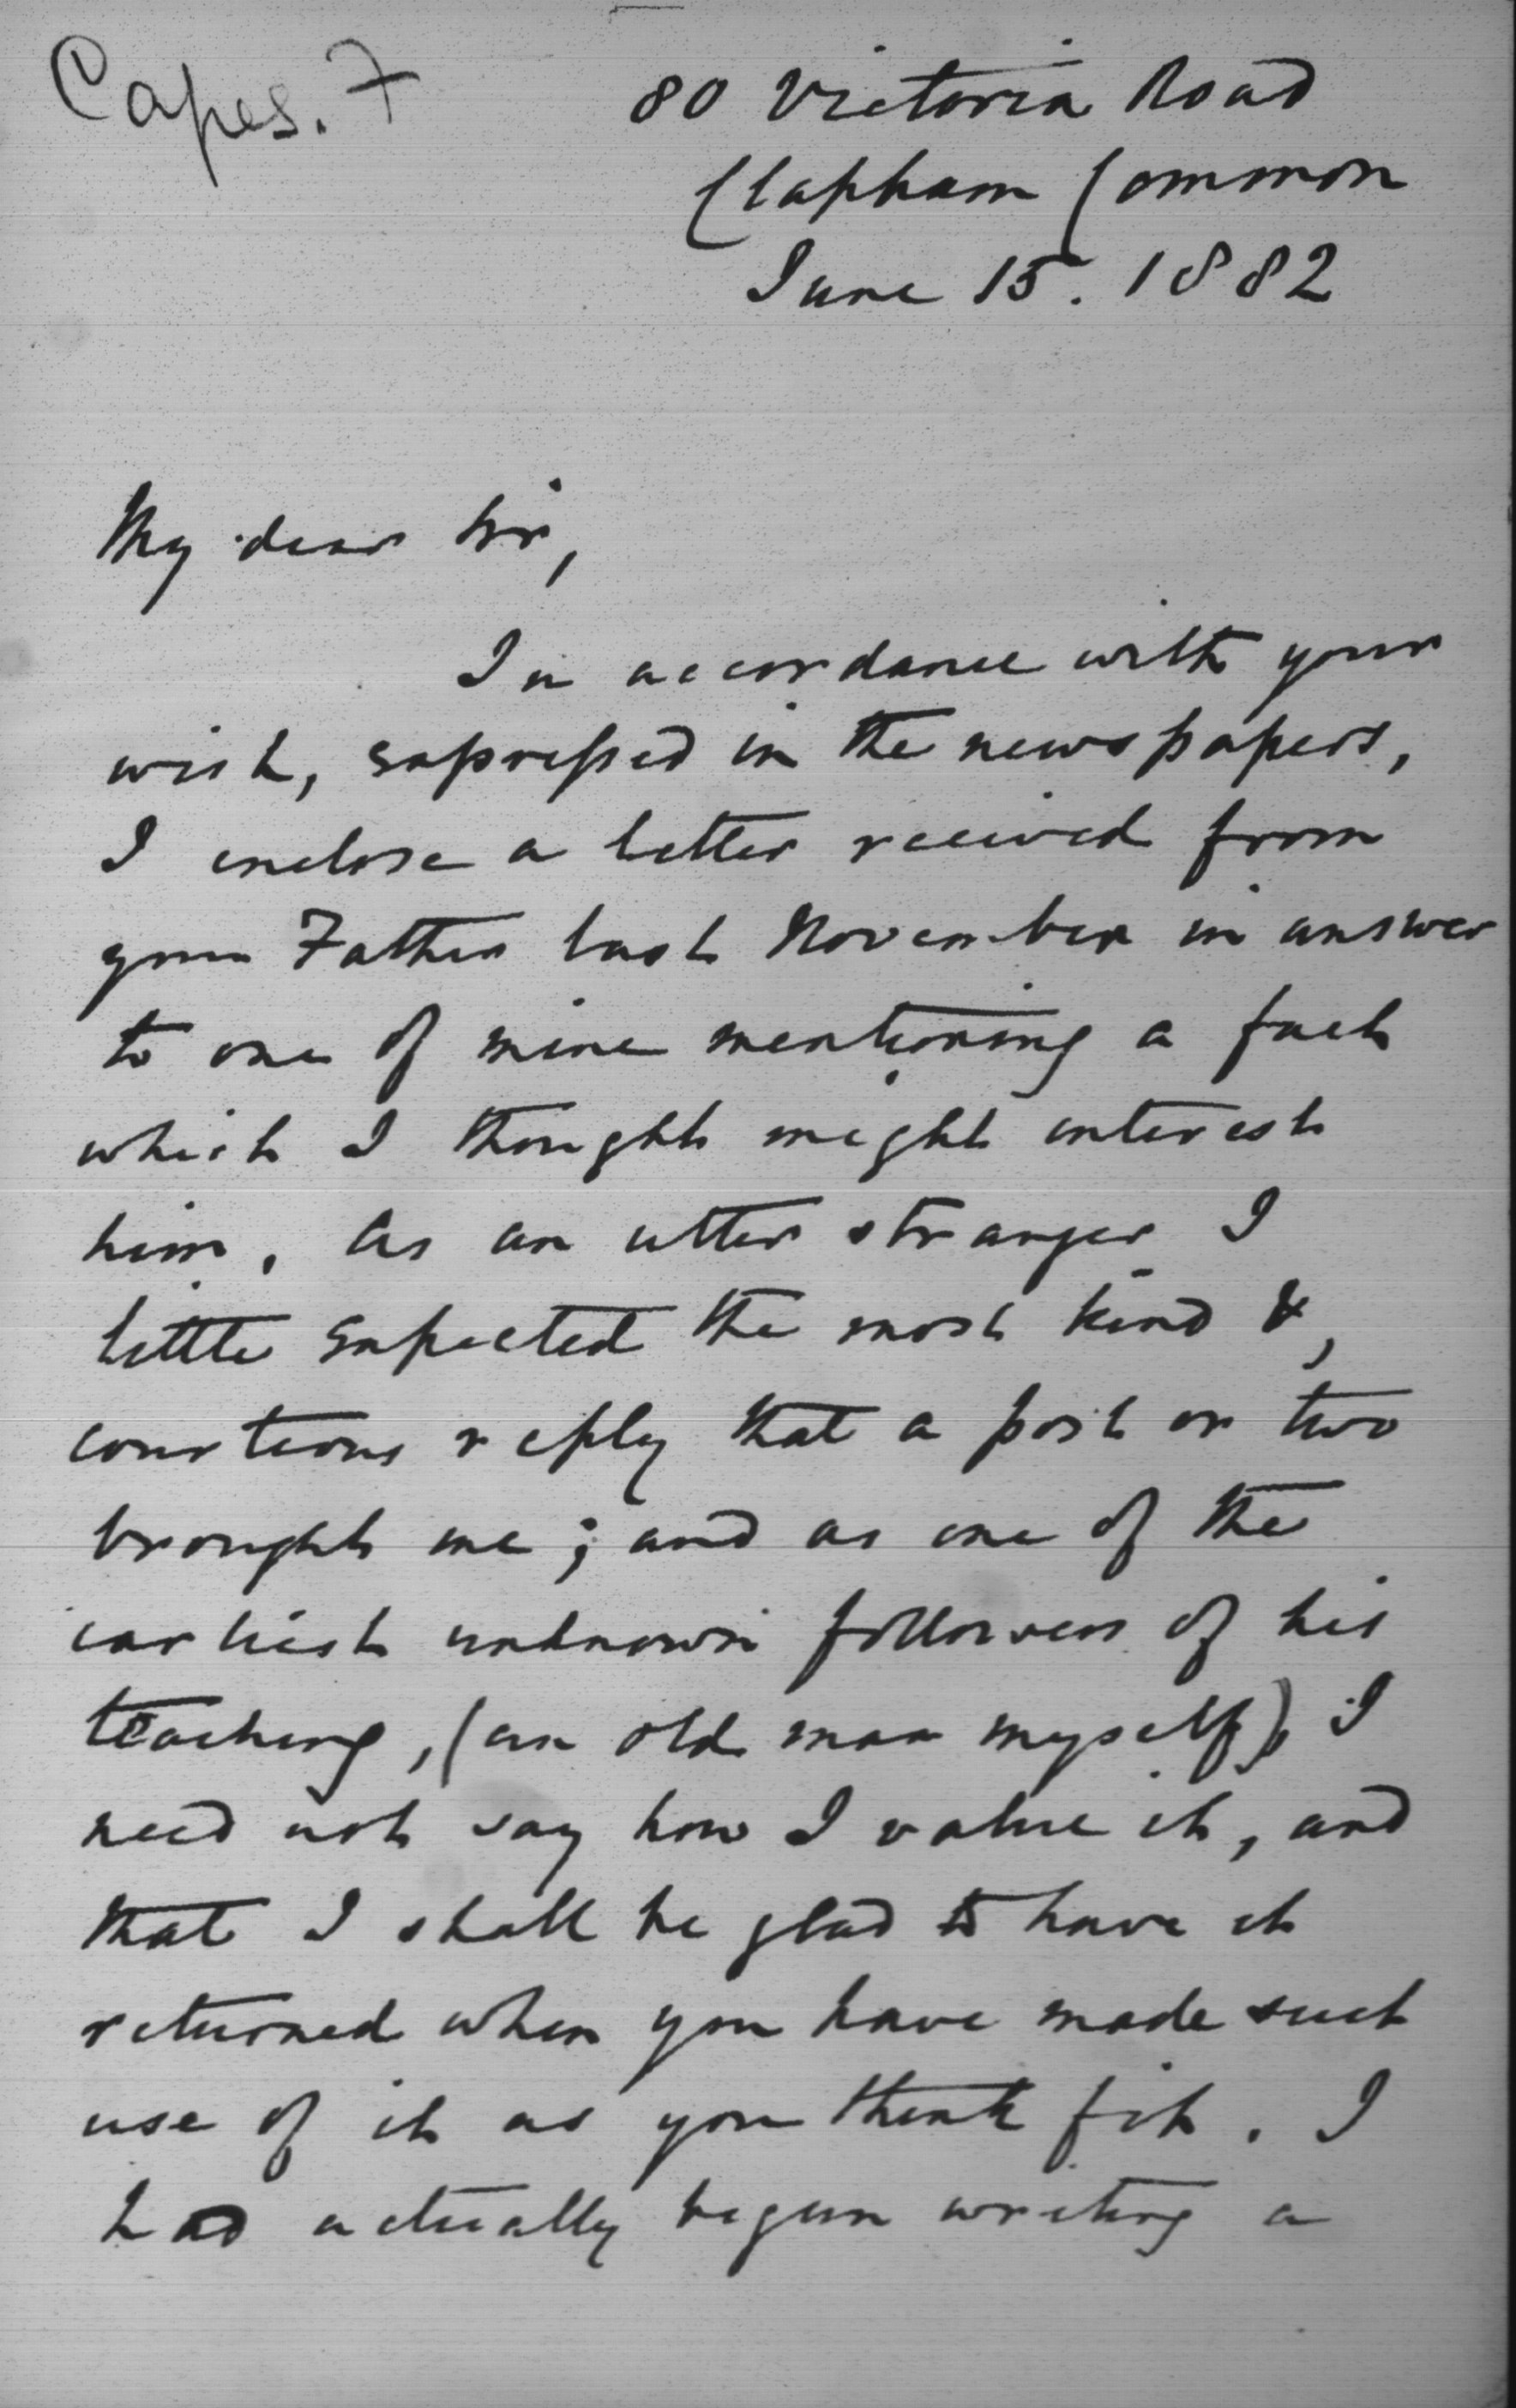 Capes. F
80 Victoria Road
Clapham Common
June 15. 1882
My dear Sir,
In accordance with your
wish, expressed in the newspapers,
I enclose a letter received from
your Father last November in answer
to one of mine mentioning a fact
which I thought might interest
him. As an utter stranger I
little expected the most kind &,
courteous reply that a post or two
brought me; and as one of the
earliest unknown followers of his
teaching, (an old man myself), I
need not say how I value it, and
that I shall be glad to have it
returned when you have made such
use of it as you think fit. I
had actually begun writing a